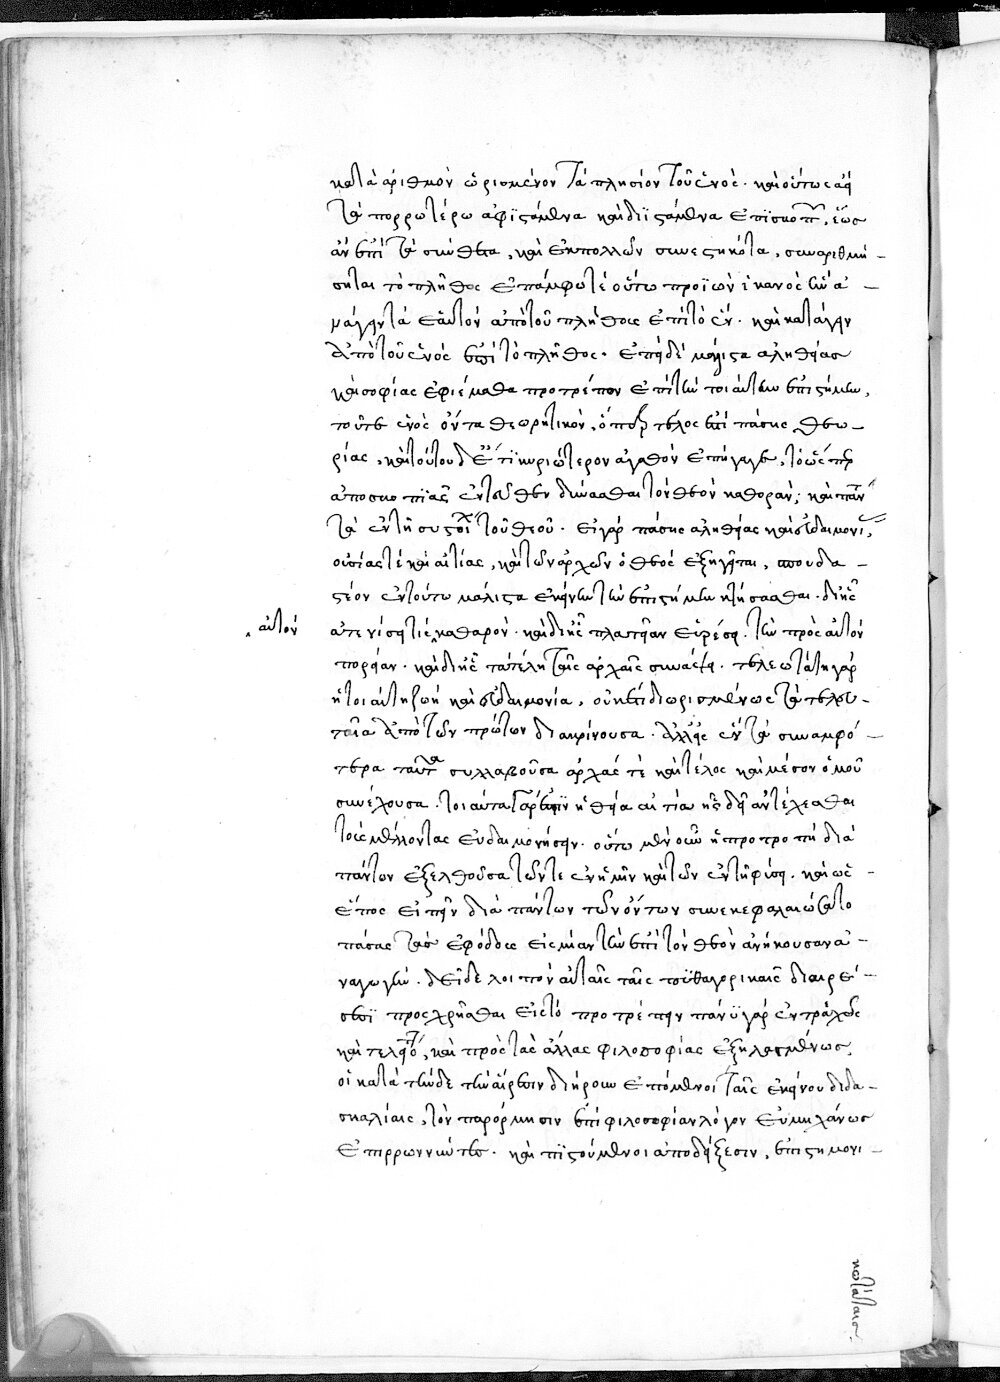 κατὰ ἀριθμὸν ὡρισμένον τὰ πλησίον τοῦ ἑνός· καὶ οὕτως ἀεὶ
τὰ πορρωτέρω ἀφιστάμενα καὶ διϊστάμενα ἐπισκοπεῖν, ἕως
ἂν ἐπὶ τὰ σύνθετα, καὶ ἐκ πολλῶν συνεστηκότα, συναριθμή-
σηται τὸ πλῆθος ἐπ' ἀμφότε οὕτω προϊὼν ἱκανὸς
ἀπὸ τοῦ πλήθους ἐπὶ τὸ ἕν· καὶ κατάγειν
ἀπὸ τοῦ ἑνὸς ἐπὶ τὸ πλῆθος· ἐπεὶ δὲ μάλιστα ἀληθείας
καὶ σοφίας ἐφιέμεθα προτρέπον ἐπὶ τὴν τοιαύτην ἐπιστήμην,
τοῦτε ἑνὸς ὄντα θεωρητικὸν, ὅπερ τέλος ἐστὶ πάσης θεω-
ρίας, καὶ τούτου δ' ἔτι κυριώτερον ἀγαθὸν ἐπήγαγε, τὸ ὥσπερ
ἀποσκοπιᾶς ἐντεῦθεν δύνασθαι τὸν θεὸν καθορᾶν; καὶ πάντα
τὰ ἐν τῆ συστοιχεία τοῦ θεοῦ· εἰ γὰρ πάσης ἀληθείας καὶ εὐδαιμονί,
οὐσίας τὲ καὶ αἰτίας, καὶ τῶν ἀρχῶν ὁ θεὸς ἐξηγεῖται, σπουδα-
στέον ἐν τούτω μάλιστα ἐκείνην τὴν ἐπιστήμην κτήσασθαι· δι' ἧς
αὐτὸν
ἀτενίσητις καθαρόν· καὶ δι' ἧς πλατεῖαν εὑρέσει τὴν πρὸς αὐτὸν
πορείαν· καὶ δι' ἧς τὰ τέλη ταῖς ἀρχαῖς συνάψει· τελεωτάτη γὰρ
ἡ τοιαύτη ζωὴ καὶ εὐδαιμονία, οὐκέτι διωρισμένως τὰ τελευ-
ταῖα ἀπὸ τῶν πρώτων διακρίνουσα· ἀλλ' εἰς ἓν τὰ συναμφό-
τερα ταῦτα συλλαβοῦσα ἀρχάς τὲ καὶ τέλος καὶ μέσον ὁμοῦ
συνέχουσα· τοιαύτα γάρ ἐστιν ἡ θεία αἰτία ἧς δεῖ ἀντέχεσθαι
τοὺς μέλλοντας εὐδαιμονήσειν· οὕτω μὲν οὖν ἡ προτροπὴ διὰ
πάντων ἐξελθοῦσα τῶν τε ἐν ἡμῖν καὶ τῶν ἐν τῆ φύσει· καὶ ὡς
ἔπος εἰπεῖν διὰ πάντων τῶν ὄντων συνεκεφαλαιώσατο
πάσας τὰς ἐφόδους εἰς μίαν τὴν ἐπὶ τὸν θεὸν ἀνήκουσαν ἀ-
ναγωγὴν· δεῖ δὲ λοιπὸν αὐταῖς ταῖς πυθαγορικαῖς διαιρέ-
σεσι προσχρῆσθαι εἰς τὸ προτρέπειν πάνυ γὰρ ἐντρέχῶς
καὶ τελείως, καὶ πρὸς τὰς ἄλλας φιλοσοφίας ἐξηλαγμένως,
οἱ κατὰ τήνδε τὴν αἵρεσιν διήρουν ἑπόμενοι ταῖς ἐκείνου διδα-
σκαλίαις, τὸν παρόρμησιν ἐπὶ φιλοσοφίαν λόγον εὐμηχάνως
ἐπιρρωννύντες· καὶ πιστούμενοι ἀποδείξεσιν, ἐπιστημονι-
κωτάταις